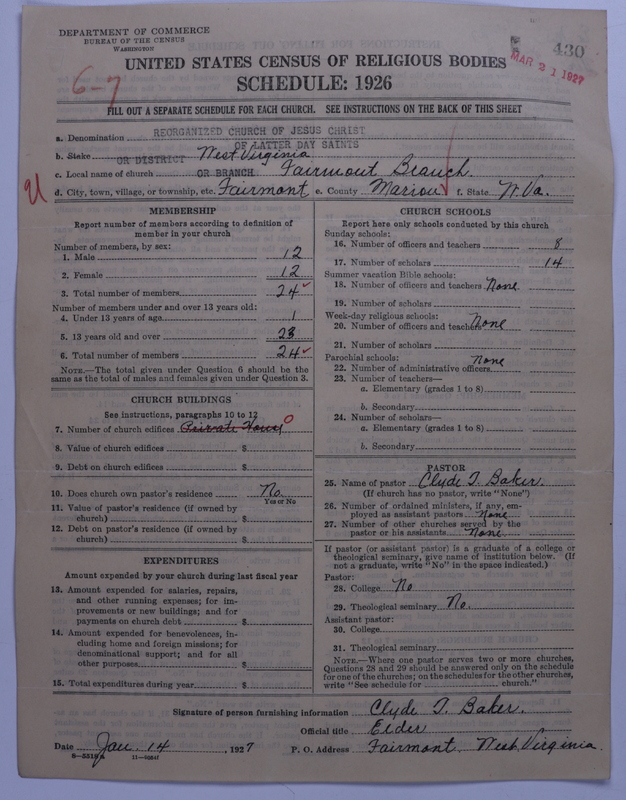 DEPARTMENT OF COMMERCE
BUREAU OF THE CENSUS
WASHINGTON
430
MAR 21 1927
6-7
UNITED STATES CENSUS OF RELIGIOUS BODIES
SCHEDULE: 1926
FILL OUT A SEPARATE SCHEDULE FOR EACH CHURCH. SEE INSTRUCTIONS ON THE BACK OF THIS SHEET
a. Denomination REORGANIZED CHURCH OF JESUS CHRIST
OF LATTER DAY SAINTS
b. Stake OR DISTRICT West Virginia
c. Local name of church OR BRANCH Fairmont Branch
d. City, town, village, or township, etc. Fairmont e. County Marion f. State W. Va.
MEMBERSHIP
Report number of members according to definition of
member in your church
Number of members, by sex:
1. Male 12
2. Female 12
3. Total number of members 24
Number of members under and over 13 years old:
4. Under 13 years of age 1
5. 13 years old and over 23
6. Total number of members 24
NOTE.—The total given under Question 6 should be the
same as the total of males and females given under Question 3.
CHURCH BUILDINGS
See instructions, paragraphs 10 to 12
7. Number of church edifices Private House 0
8. Value of church edifices $
9. Debt on church edifices $
10. Does church own pastor's residence No
Yes or No
11. Value of pastor's residence (if owned by
church) $
12. Debt on pastor's residence (if owned by
church) $
EXPENDITURES
Amount expended by your church during last fiscal year
13. Amount expended for salaries, repairs,
and other running expenses; for im-
provements or new buildings; and for
payments on church debt $
14. Amount expended for benevolences, in-
cluding home and foreign missions; for
denominational support; and for all
other purposes $
15. Total expenditures during year $
CHURCH SCHOOLS
Report here only schools conducted by this church
Sunday schools:
16. Number of officers and teachers 8
17. Number of scholars 14
Summer vacation Bible schools:
18. Number of officers and teachers None
19. Number of scholars
Week-day religious schools:
20. Number of officers and teachers None
21. Number of scholars
Parochial schools: None
22. Number of administrative officers
23. Number of teachers—
a. Elementary (grades 1 to 8)
b. Secondary
24. Number of scholars—
a. Elementary (grades 1 to 8)
b. Secondary
PASTOR
25. Name of pastor Clyde T. Baker.
(If church has no pastor, write "None")
26. Number of ordained ministers, if any, em-
ployed as assistant pastors None
27. Number of other churches served by the
pastor or his assistants None
If pastor (or assistant pastor) is a graduate of a college or
theological seminary, give name of institution below. (If
not a graduate, write "No" in the space indicated.)
Pastor:
28. College No
29. Theological seminary No.
Assistant pastor:
30. College
31. Theological seminary
NOTE.—Where one pastor serves two or more churches,
Questions 28 and 29 should be answered only on the schedule
for one of the churches; on the schedules for the other churches,
write "See schedule for church."
Signature of person furnishing information Clyde T. Baker.
Official title Elder
Date Jan. 14, 1927 P. O. Address Fairmont, West, Virginia.